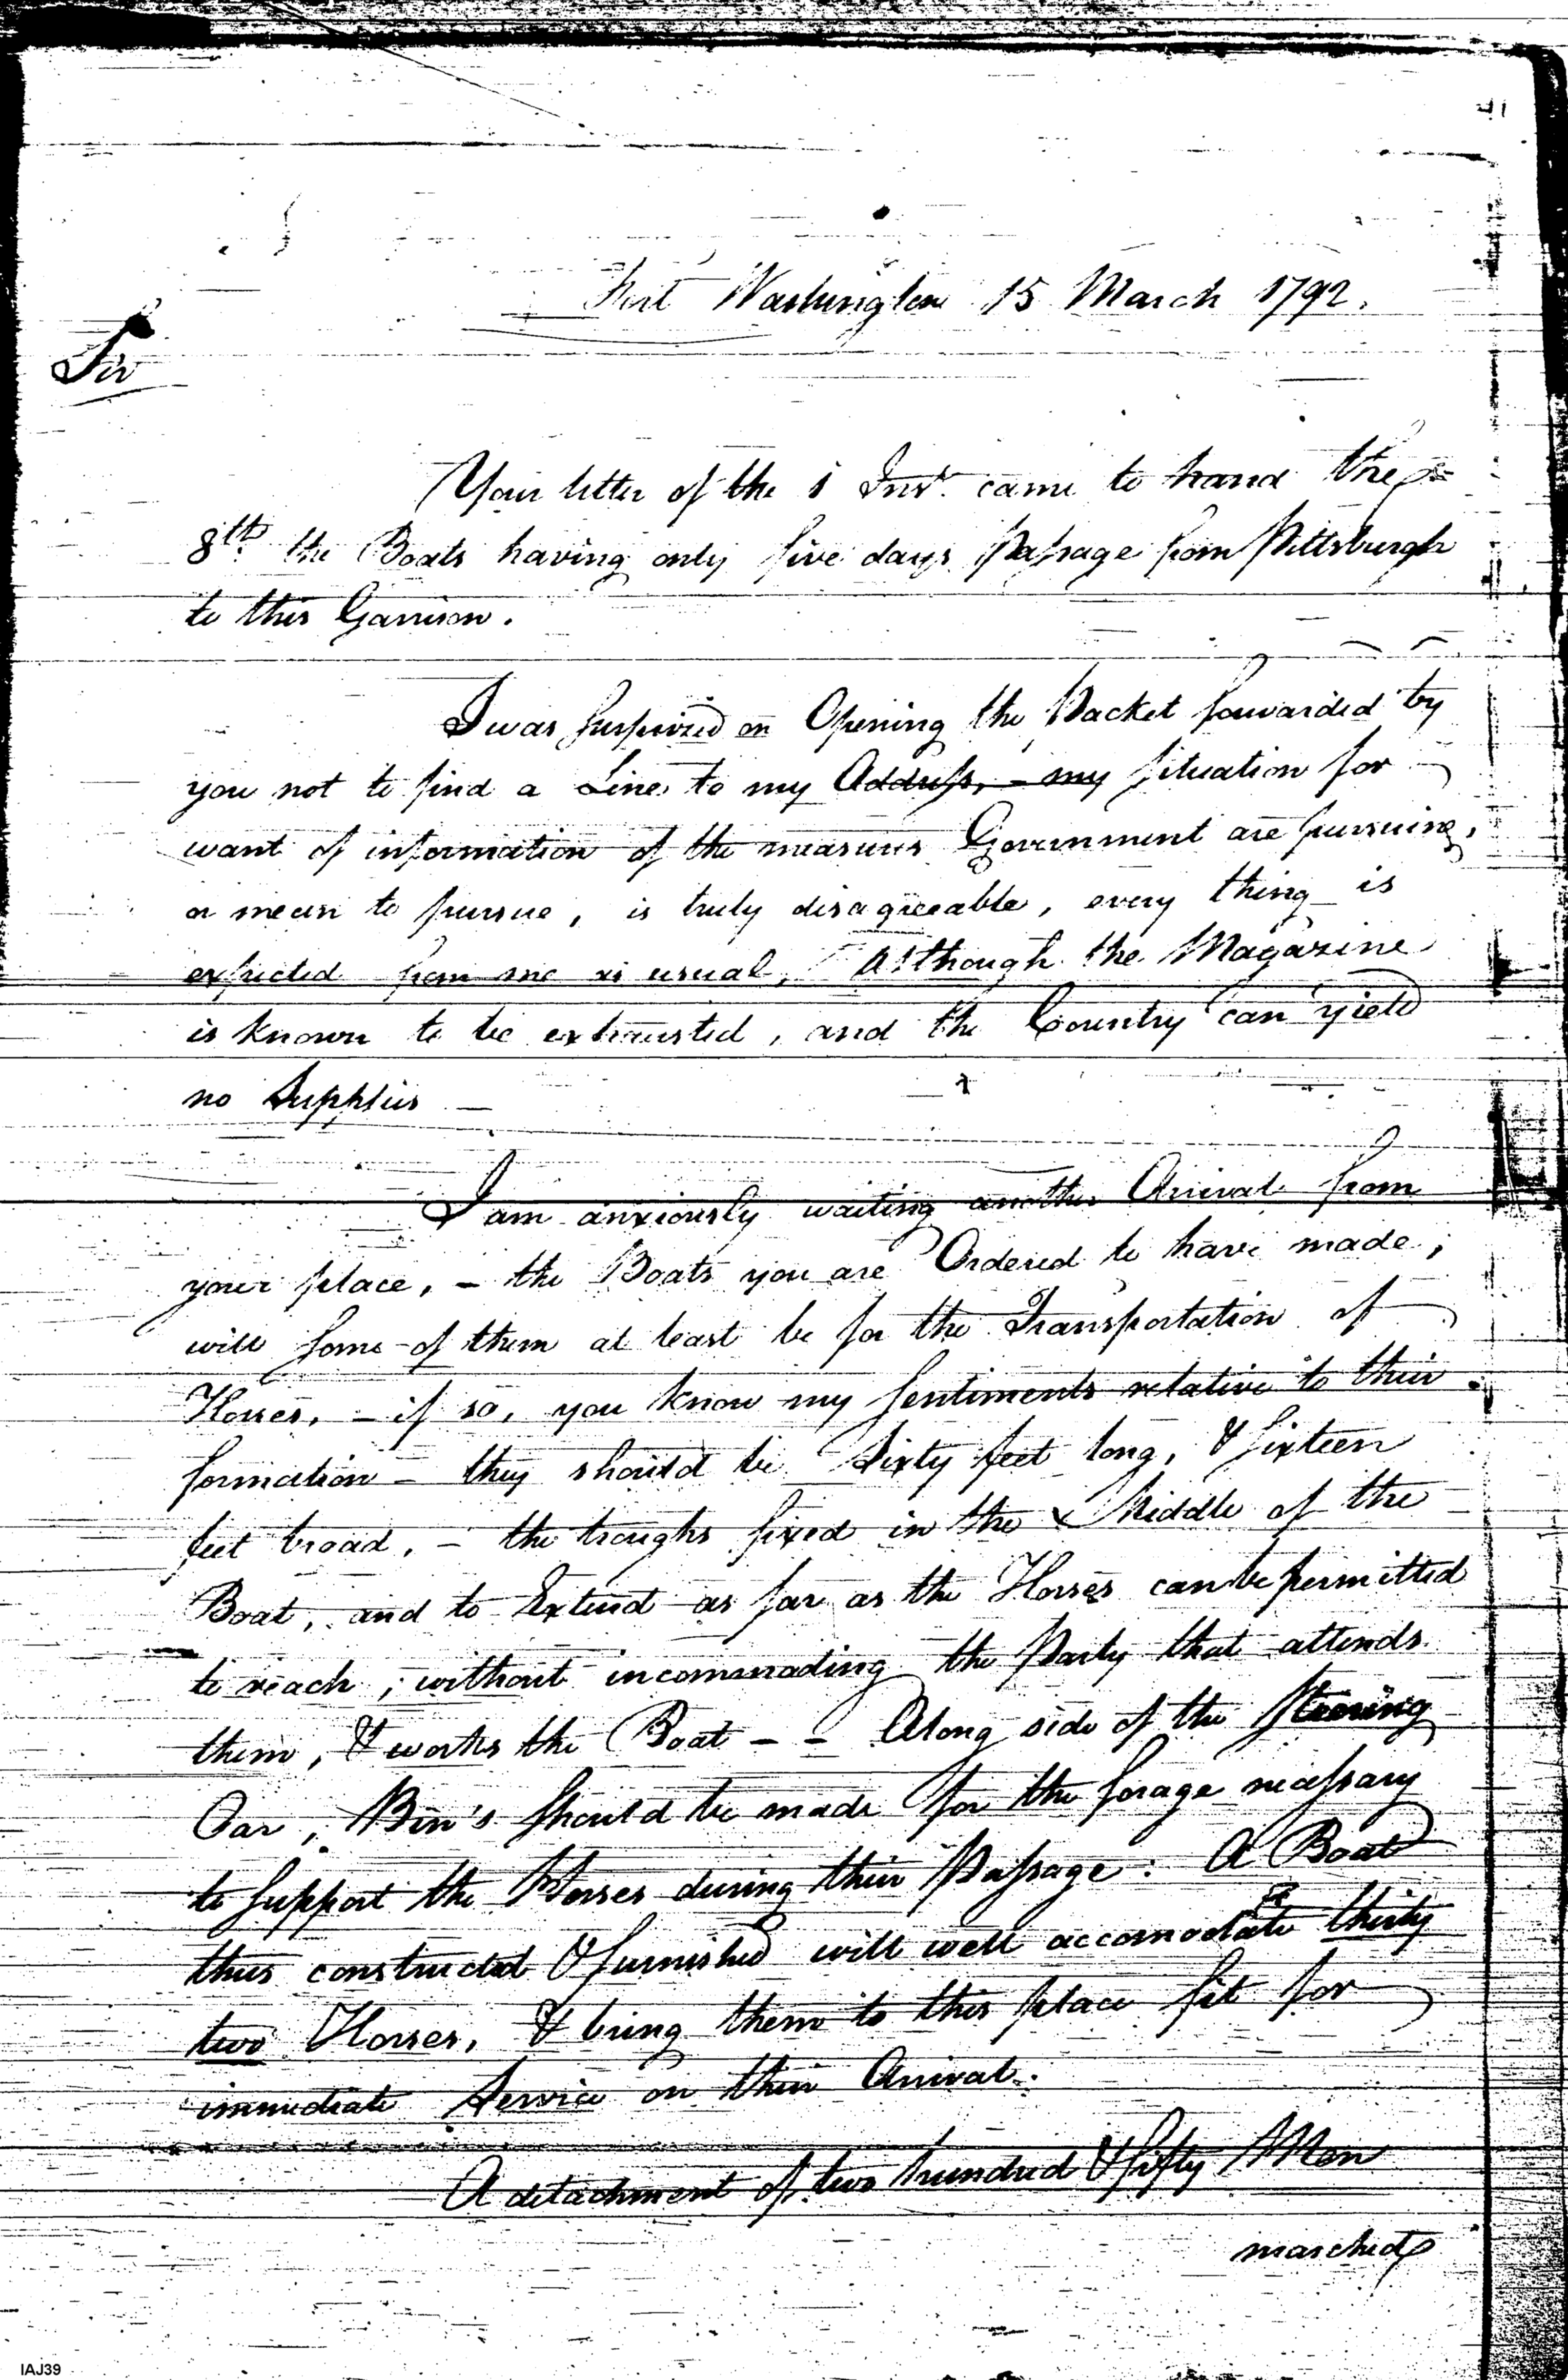 41
Fort Washington 15 March 1792.
Sir
Your letter of the 1 Inst. came to hand the
8th. the Boats having only five days Passage from Pittsburgh
to this Garrison.
I was Surprized on Opening the Packet forwarded by
you not to find a Line to my Address, - my situation for
want of information of the measures Government are pursuing,
or mean to pursue, is truly disagreeable, every thing is
expected from me as usual, Although the Magazine
is known to be exhausted, and the Country can yield
no Supplies —
I am anxiously waiting another Arival from
your place, - the Boats you are Ordered to have made,
will some of them at least be for the Transportation of
Horses, - if so, you know my sentiments relative to their
formation - they should be Sixty feet long, & sixteen
feet broad, - the troughs fixed in the Middle of the
Boat, and to Extend as far as the Horses can be permitted
to reach, without incommoding the Party that attends
them, & works the Boat - - Along side of the steering
Oar, Bin's should be made for the forage necessary
to support the Horses during their Passage: A Boat
thus constructed & furnished will well accomodate thirty
two Horses, & bring them to this place fit for
immediate Service on their Arival.
A detachment of two hundred & fifty Men
marched
IAJ39